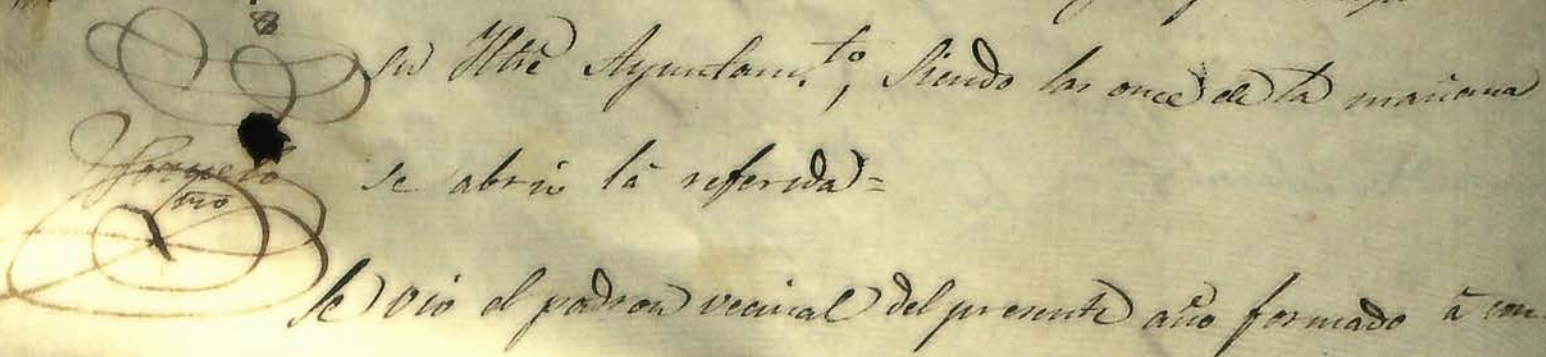 su Iltre Ayuntam.to, siendo las once de la mañana
se abrió la referida =
Se vio el padron vecinal del presente año formado á con